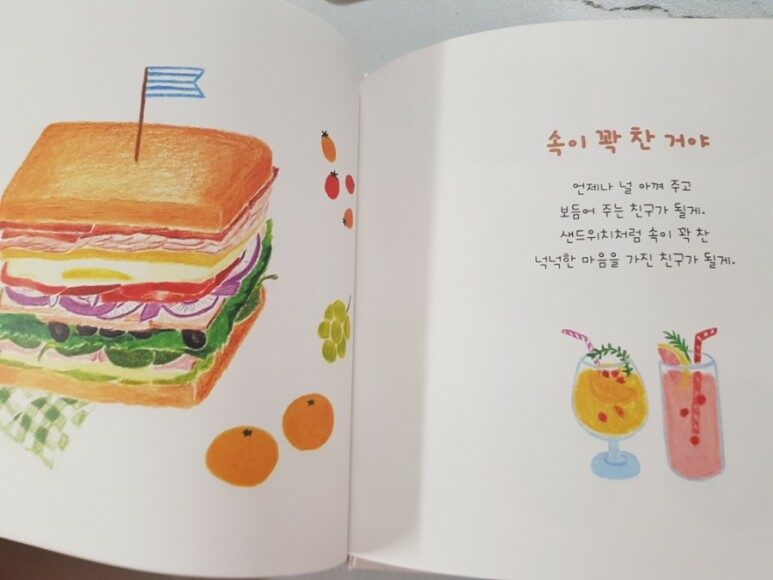 속이 꽉 찬 거야
언제나 널 아껴 주고
보듬어 주는 친구가 될게.
샌드위치처럼 속이 꽉 찬
넉넉한 마음을 가진 친구가 될게.